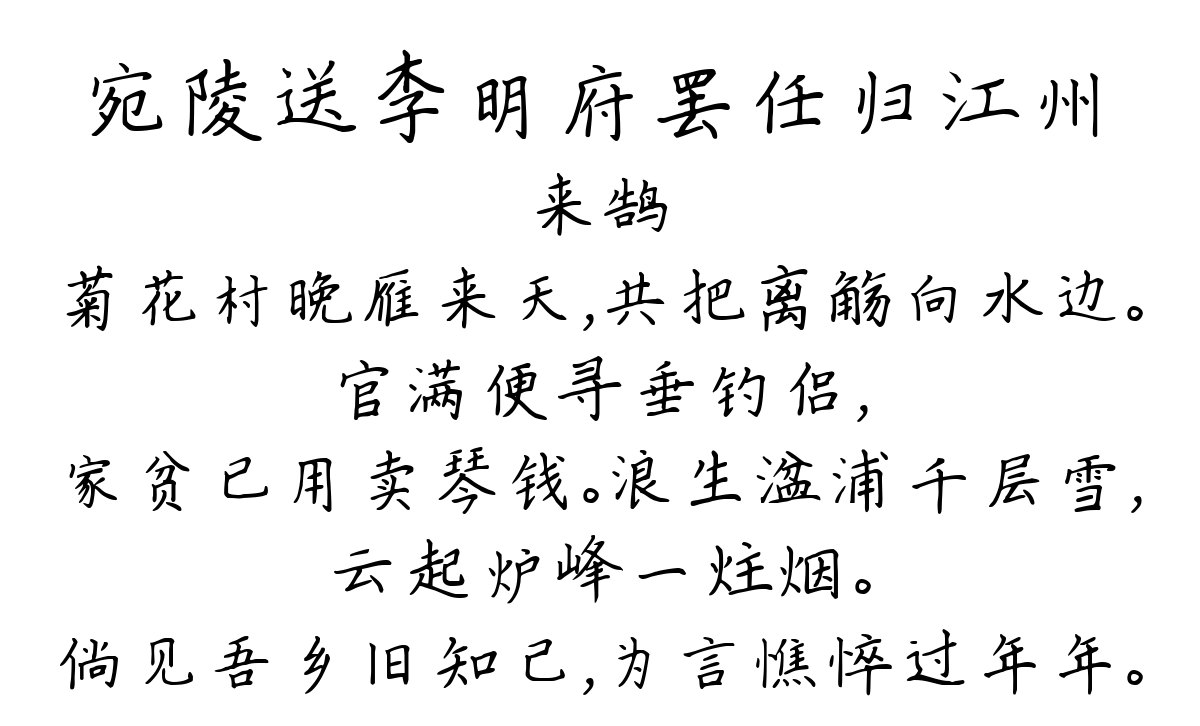 宛陵送李明府罢任归江州
来鹄
菊花村晚雁来天,共把离觞向水边。
官满便寻垂钓侣,
家贫已用卖琴钱。浪生湓浦千层雪,
云起炉峰一炷烟。
倘见吾乡旧知己,为言憔悴过年年。